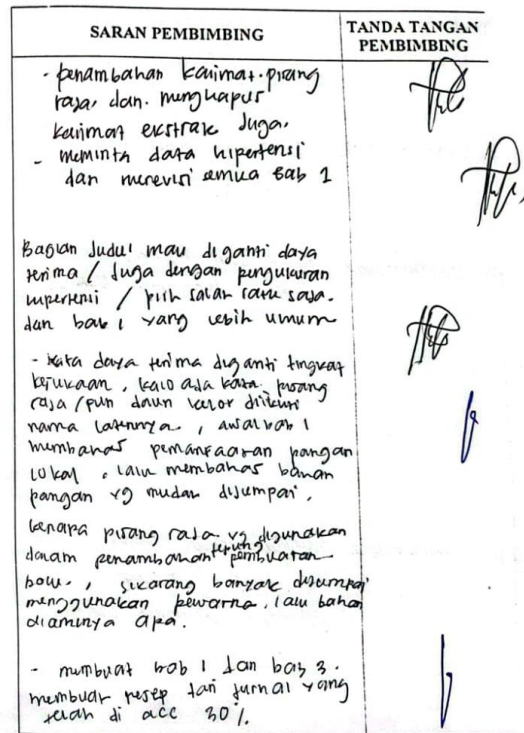 SARAN PEMBIMBING
TANDA TANGAN
PEMBIMBING
- penambahan kalimat pisang
raja, dan menghapus
kalimat ekstrak juga.
- meminta data hipertensi
dan merevisi semua Bab 1
Bagian Judul mau di ganti daya
terima / Juga dengan pengukuran
hipertensi / pilih salah satu saja.
dan bab 1 yang lebih umum
- kata daya terima diganti tingkat
kesukaan, kalo ada kata pisang
raja / pun daun kelor diikuti
nama latinnya, awal bab 1
membahas pemanfaatan pangan
lokal, lalu membahas bahan
pangan yg mudah dijumpai.
kenapa pisang raja yg digunakan
dalam penambahan tepung pembuatan
bolu, sekarang banyak dijumpai
menggunakan pewarna, lalu bahan
alaminya apa.
- membuat bab 1 dan bab 3.
membuat resep dari jurnal yang
telah di acc 30%.